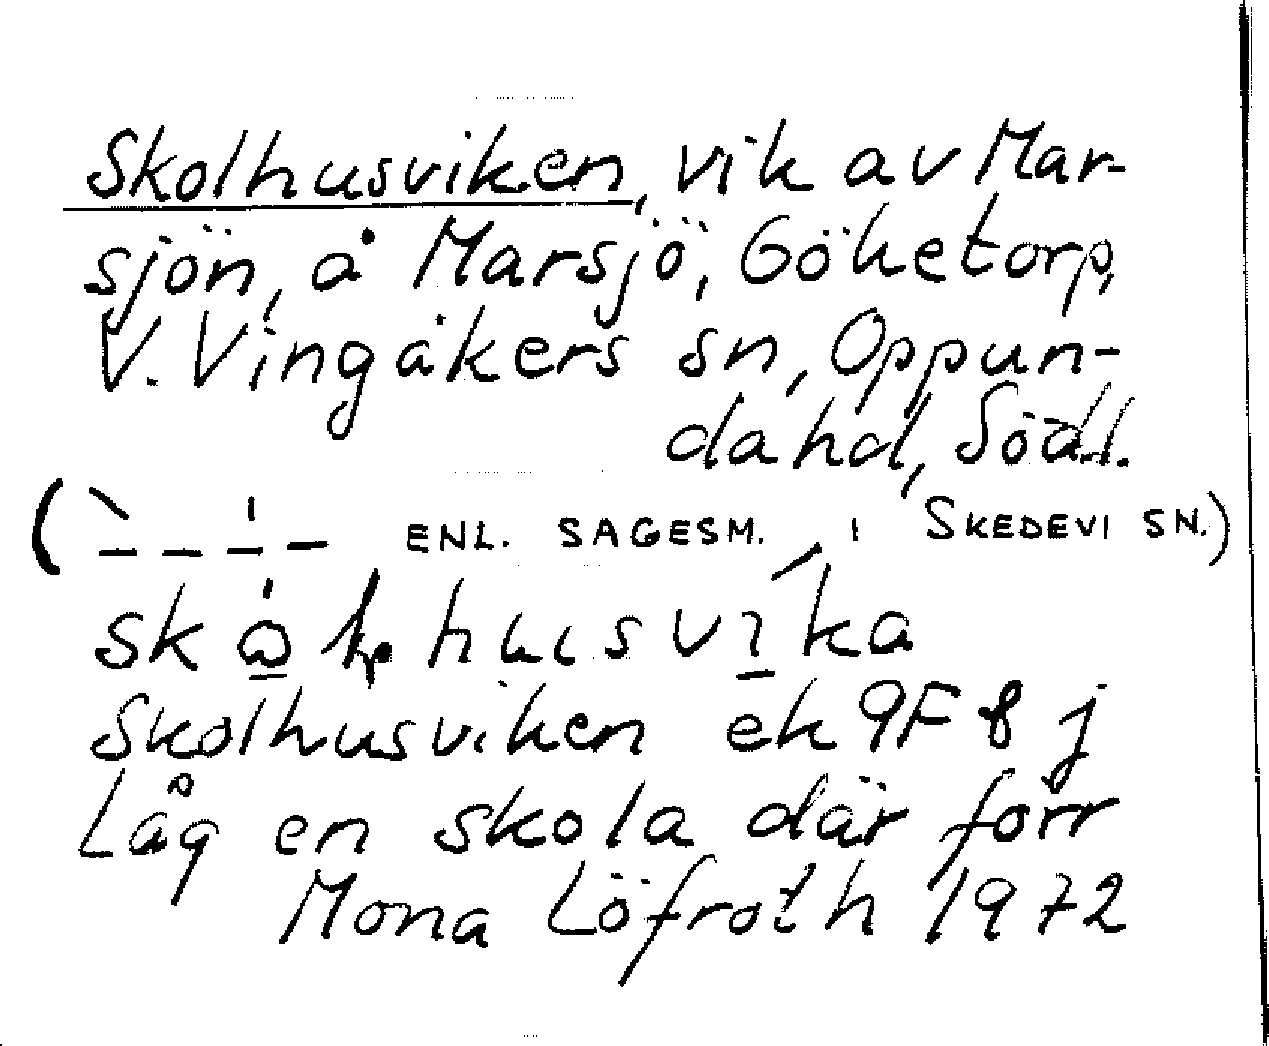 Skolhusviken, vik av Mar-
sjön, å Marsjö, Göketorp,
V. Vingåkers sn, Oppun-
da hd, Södl.
( ENL. SAGESM. I SKEDEVI SN.)
Skolhusviken ek 9F 8 j
Låg en skola där förr
Mona Löfroth 1972